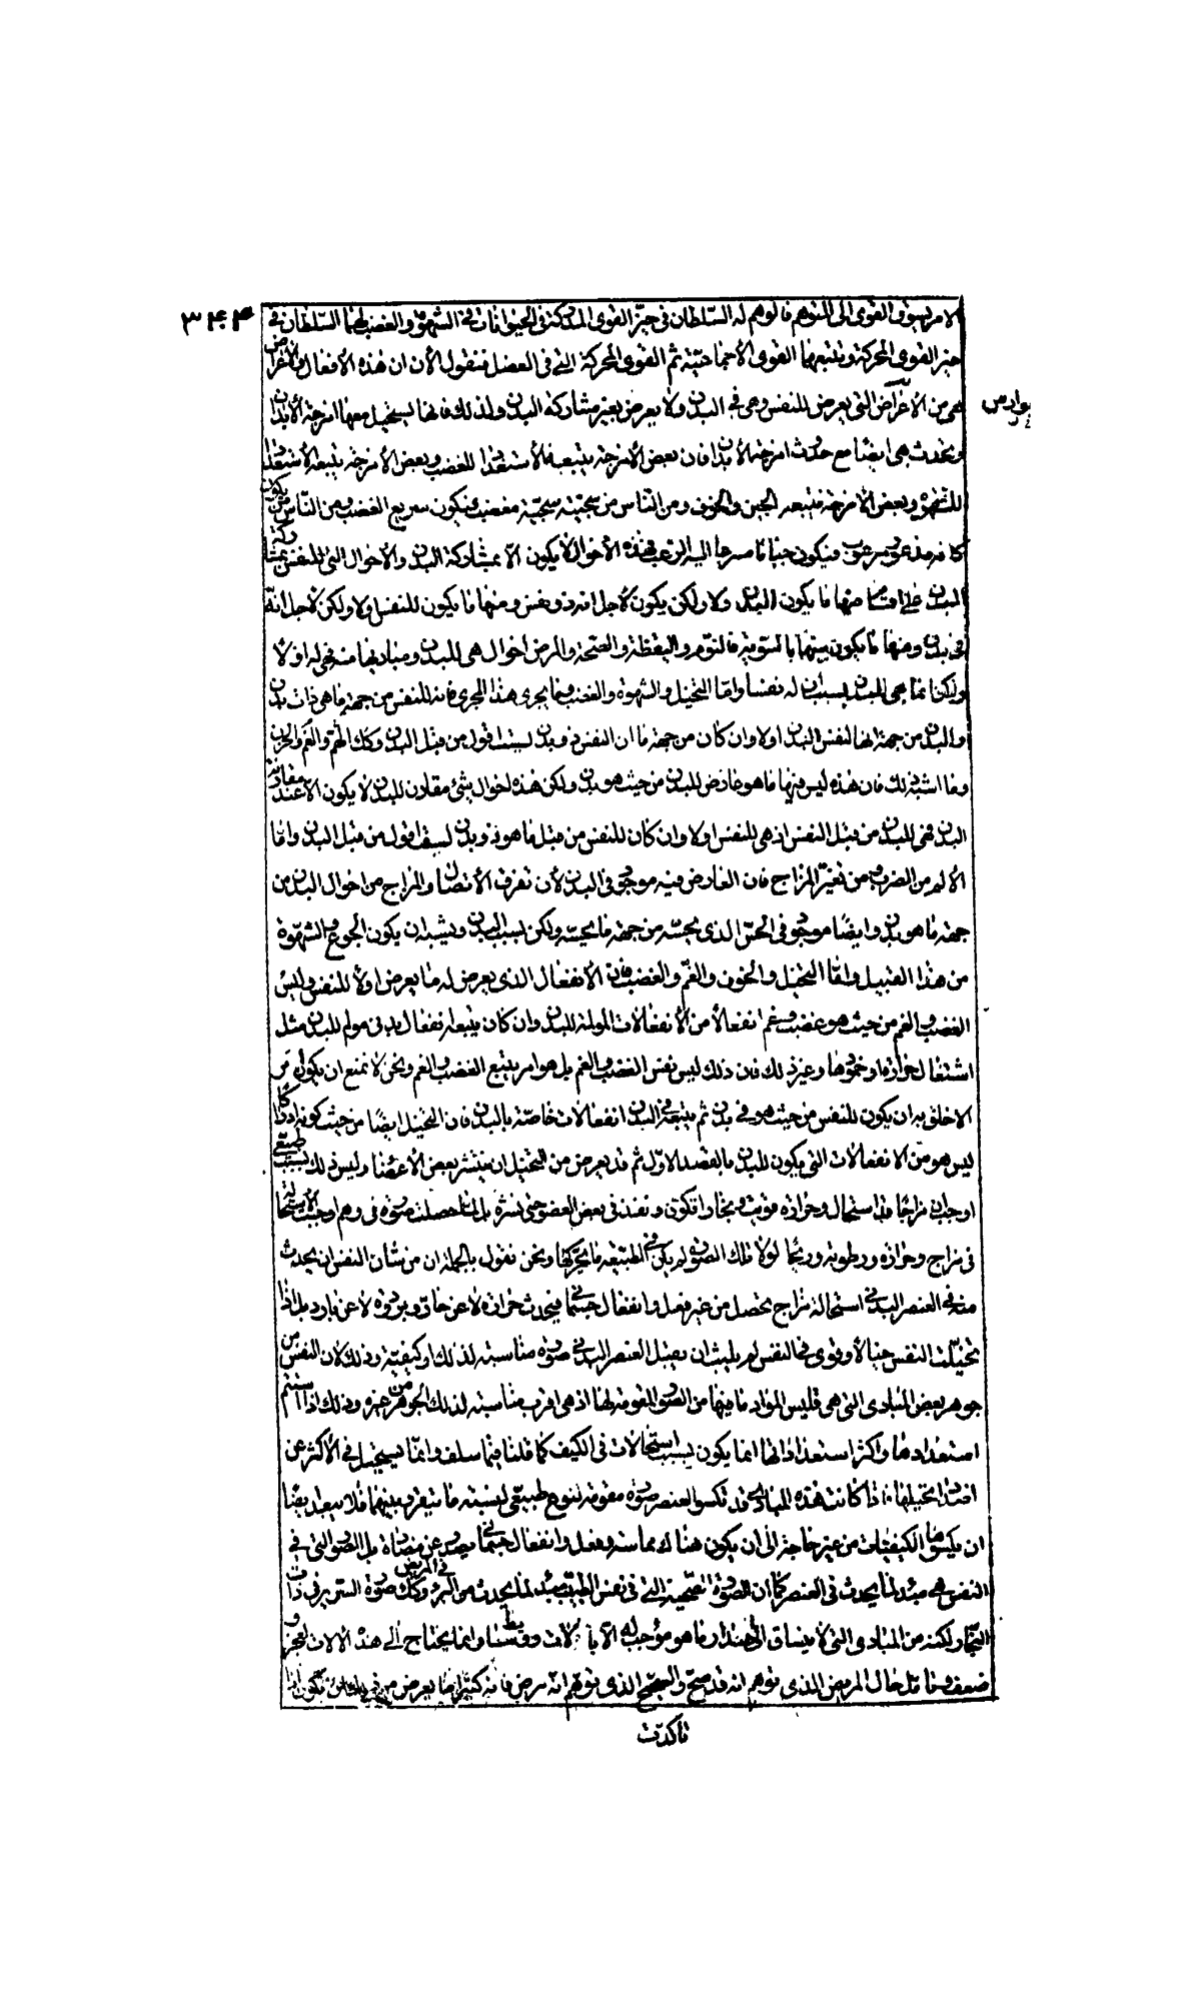 ٣٤٤
الامر يسوق القوى الى التوهم فالوهم له السلطان في حيز القوى المدركة في الحيوانات و الشهوة و الغضب لهما السلطان في
حيز القوى المحركة و يتبعهما القوى الاجماعية ثم القوى المحركة التي في العضل فنقول الآن ان هذه الافعال والاعراض
هي من الأعراض التي يعرض للنفس وهى في البدن ولا يعرض بغير مشاركة البدن ولذلك فانها يستحيل معها امزجة الأبدان
ويحدث هي ايضا مع حدوث امزجة الأبدان فان بعض الأمزجة يتبعه الأستعداد للغضب وبعض الأمزجة يتبعه الأستعداد
للشهوة وبعض الأمزجة يتبعه الجبن والخوف ومن الناس من سجيته سجية مغضب فيكون سريع الغضب ومن الناس من يكون
كانه مذعور مرعوب فيكون جبانا مسرعا اليه الرعب فهذه الأحوال لا يكون الا بمشاركة البدن والأحوال التي للنفس بمشاركة
البدن على اقسام منها ما يكون للبدن اولا ولكن يكون لاجل انه ذو نفس ومنها ما يكون للنفس اولا ولكن لاجل انها
في بدن ومنها ما يكون بينهما بالسوية فالنوم واليقظة والصحة والمرض احوال هي للبدن ومباديها منه فهي له اولا
ولكن انما هي للبدن بسبب ان له نفسا واما التخيل والشهوة والغضب وما يجرى هذا المجرى فانه للنفس من جهة ما هي ذات بدن
وللبدن من جهة انها لنفس البدن اولا وان كان من جهة ما ان النفس ذو بدن لست اقول من قبل البدن وكك الهم والغم والحزن
وما اشبه ذلك فان هذه ليس فيها ما هو عارض للبدن من حيث هو بدن ولكن هذه احوال شئ مقارن للبدن لا يكون الا عند مقارنة
البدن فهى للبدن من قبل النفس اذ هي للنفس اولا وان كان للنفس من قبل ما هو ذو بدن لست اقول من قبل البدن واما
الألم من الضرب ومن تغير المزاج فان العارض فيه موجود في البدن لأن تفرق الأتصال والمزاج من احوال البدن من
جهة ما هو بدن وايضا موجود في الحس الذي يحسه من جهة ما يحسه ولكن بسبب البدن ويشبه ان يكون الجوع والشهوة
من هذا القبيل واما التخيل والخوف والغم والغضب فان الأنفعال الذي يعرض له ما يعرض اولا للنفس وليس
الغضب والغم من حيث هو غضب وغم انفعالا من الأنفعالات المولمة للبدن وان كان يتبعه انفعال بدني مولم للبدن مثل
اشتعال حرارة او خمودها وغير ذلك فان ذلك ليس نفس الغضب والغم بل هو امر يتبع الغضب والغم ونحن لا نمنع ان يكون امر
الاخلق به ان يكون للنفس من حيث هو في بدن ثم يتبعه في البدن انفعالات خاصة بالبدن فان التخيل ايضا من حيث كونه ادراكا
ليس هو من الانفعالات التي يكون للبدن بالقصد الاول ثم قد يعرض من التخيل ان ينتشر بعض الأعضاء وليس ذلك بسبب طبيعي
اوجب ان مزاجا قد استحال وحرارة قويت وبخارا تكون ونفذ في بعض العضو حتى نشره بل لما حصلت صورة في وهم اوجبت الأستحالة
في مزاج وحرارة ورطوبة وريحا لولا تلك الصورة لم يكن في الطبيعة ما يحركها ونحن نقول بالجملة ان من شان النفس ان يحدث
منه في العنصر البدني استحالة مزاج يحصل من غير فعل وانفعال جسماني فيحدث حرارة لا عن حار وبرودة لا عن بارد بل اذا
تخيلت النفس خيالا وقوى في النفس لم يلبث ان يقبل العنصر البدني صورة مناسبة لذلك او كيفية وذلك لان النفس من
جوهر بعض المبادى التي هي تلبس المواد ما فيها من الصور المقومة لها اذ هي اقرب مناسبة لذلك الجوهر من غيره وذلك اذا استتم
استعدادها واكثر استعداداتها انما يكون بسبب استحالات في الكيف كما قلنا فيما سلف وانما يستحيل في الأكثر عن
اضداد تحيلها فاذا كانت هذه المبادى قد تكسو العنصر صورة مقومة لنوع طبيعي لنسبة ما يتقرر بينهما فلا يبعد ايضا
ان يكسوها الكيفيات من غير حاجة الى ان يكون هناك مماسة وفعل وانفعال جسماني يصدر عن مضادة بل الصورة التي في
النفس هي مبدء لما يحدث في العنصر كما ان الصورة الصحية التي في نفس الطبيب مبدء لما يحدث من البرء في المريض وكك صورة السرير في ذات
النجار ولكنه من المبادى التي لا ينساق الى اصدار ما هو موجب له الا بالات ووسائط وانما يحتاج الى هذه الالات لعجز و
ضعف وتامل حال المريض الذي توهم انه قد صح والصحيح الذي توهم انه مرض فانه كثيرا ما يعرض من
تاكدت